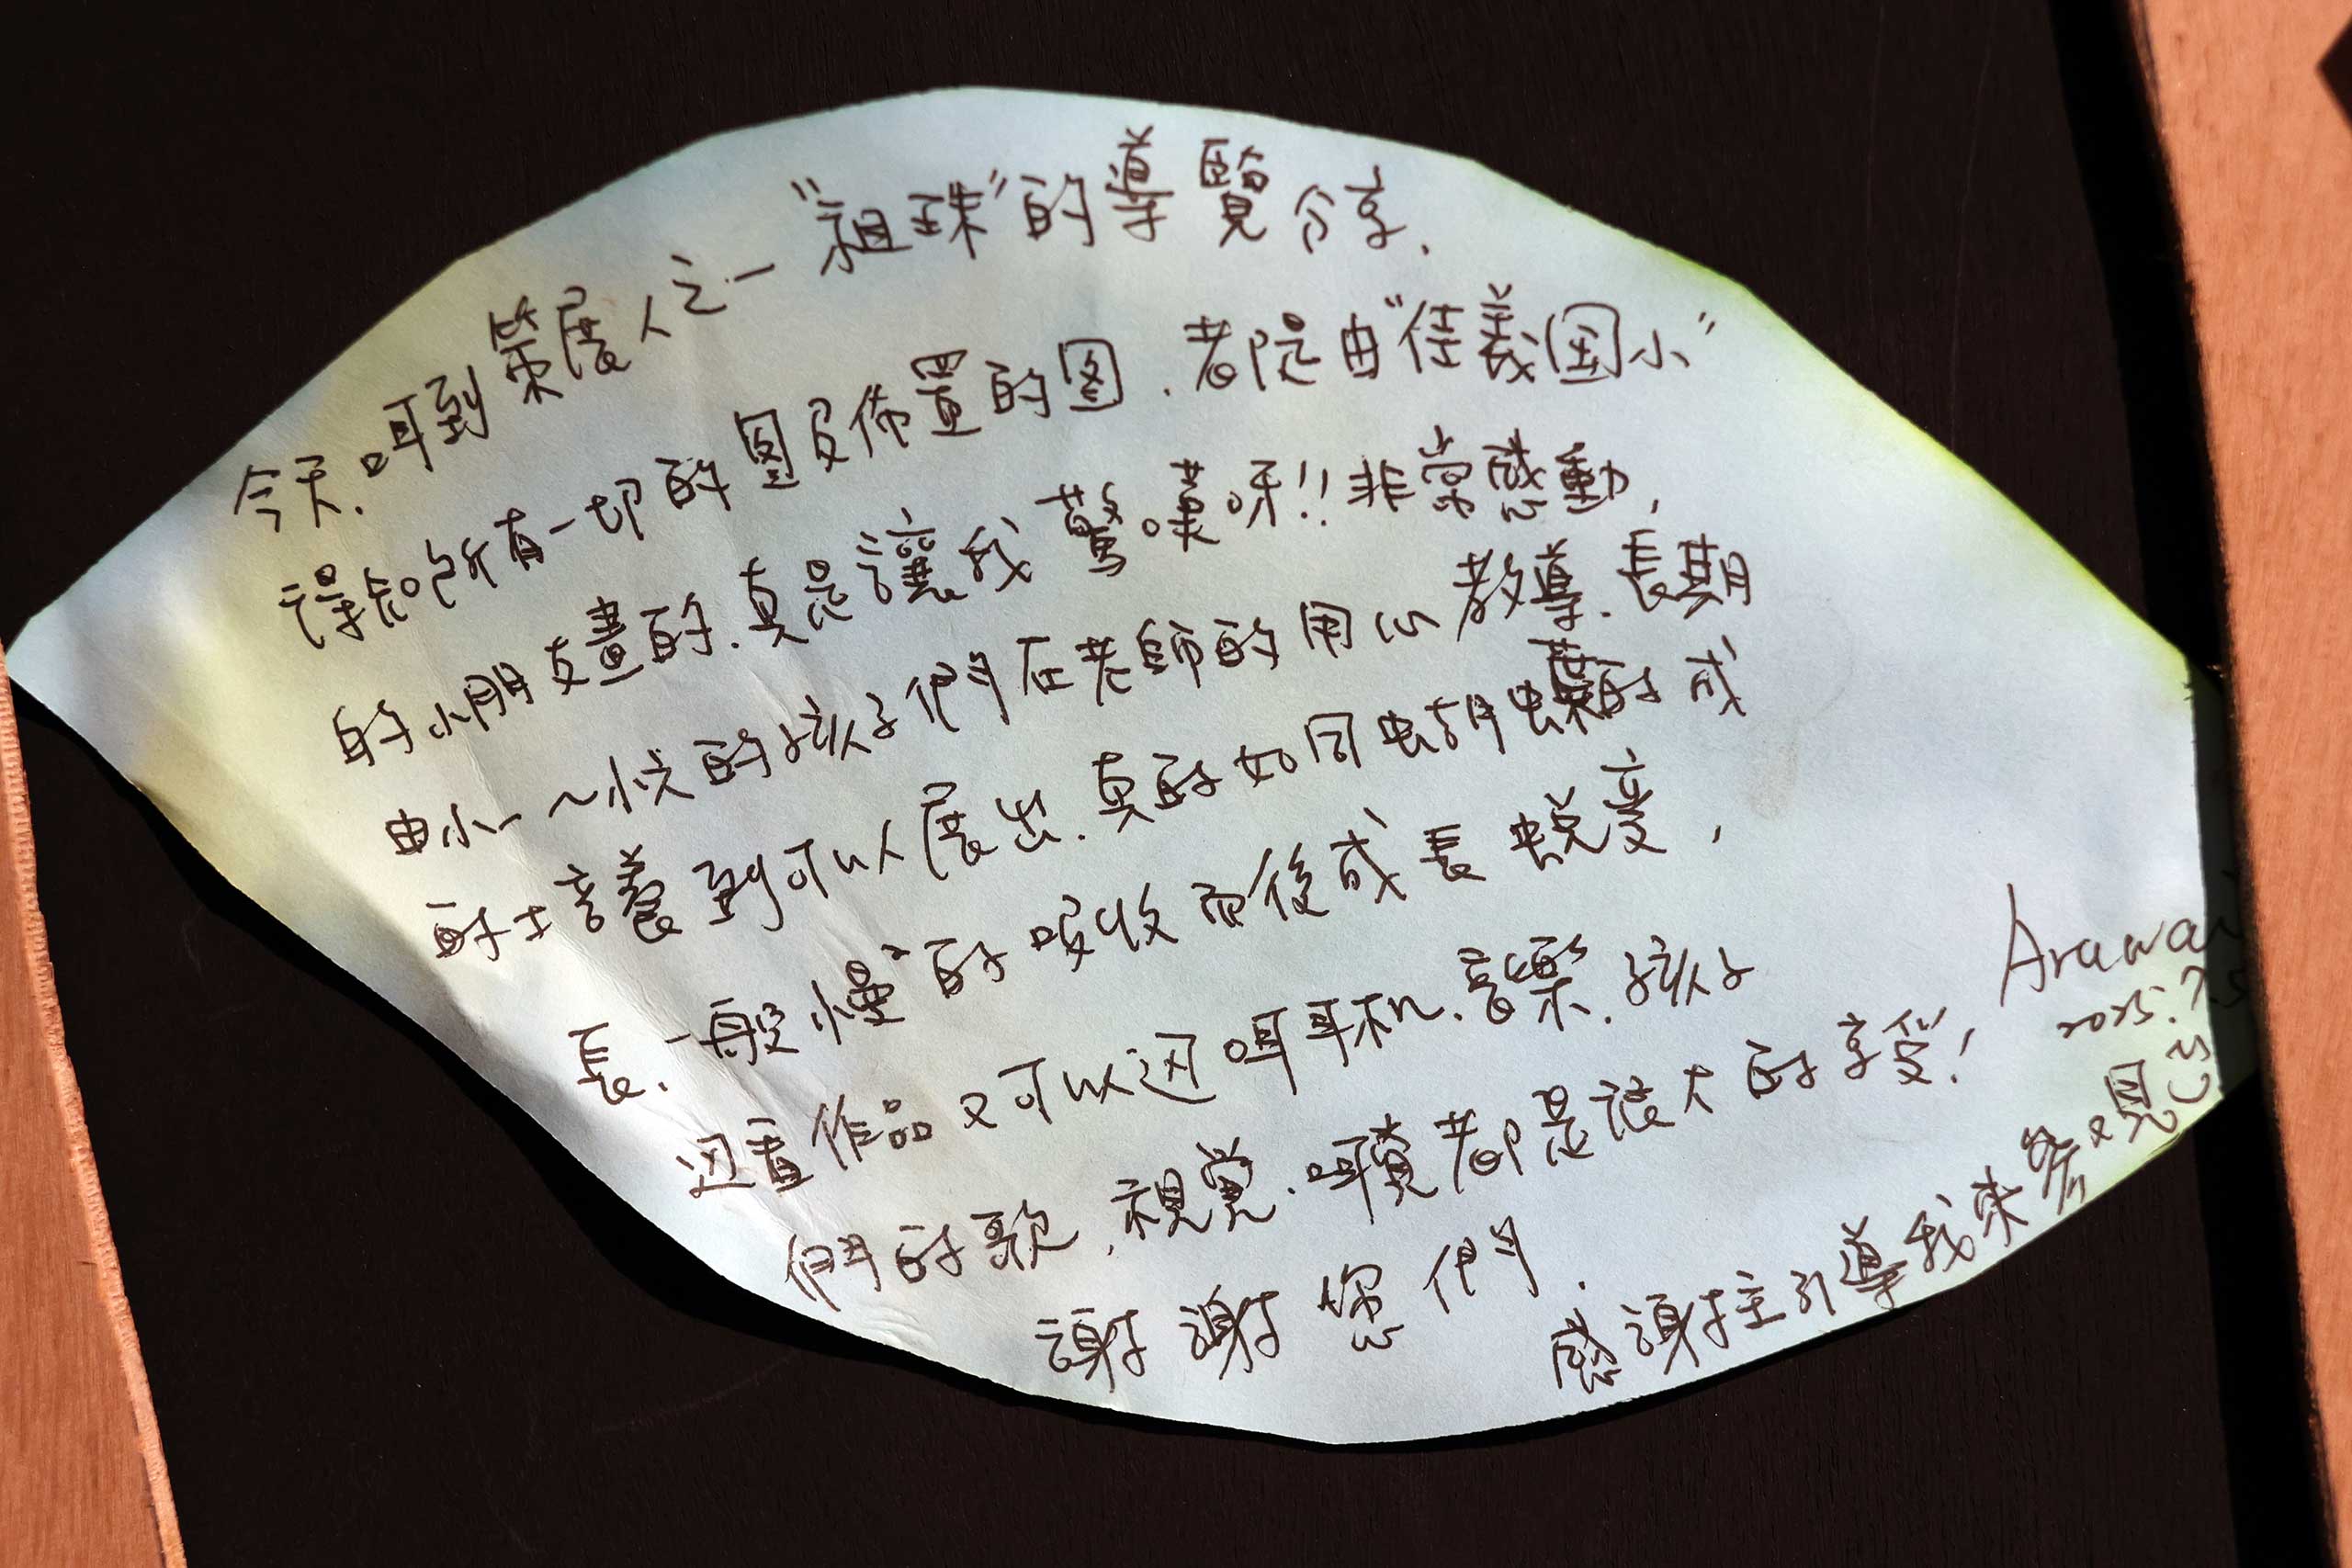 今天.叫到策展人之一"祖珠"的導覽分享.
得知吔所有一切的圖及佈置的图.都是由"佳義国小"
的小朋友畫的.真是讓我驚嘆呀!!非常感動,
由小一~小六的孩子們在老師的用心教導.長期
的培養到可以展出.真的如同蝴蝶的成
長.一般慢慢的吸收而後成長蛻變,
边看作品又可以边叫耳机.音樂.孩子
們的歌.視覺.叫覺都是很大的享受!
謝謝您們.
Arawa
2025.7.5
感謝主引導我來參观